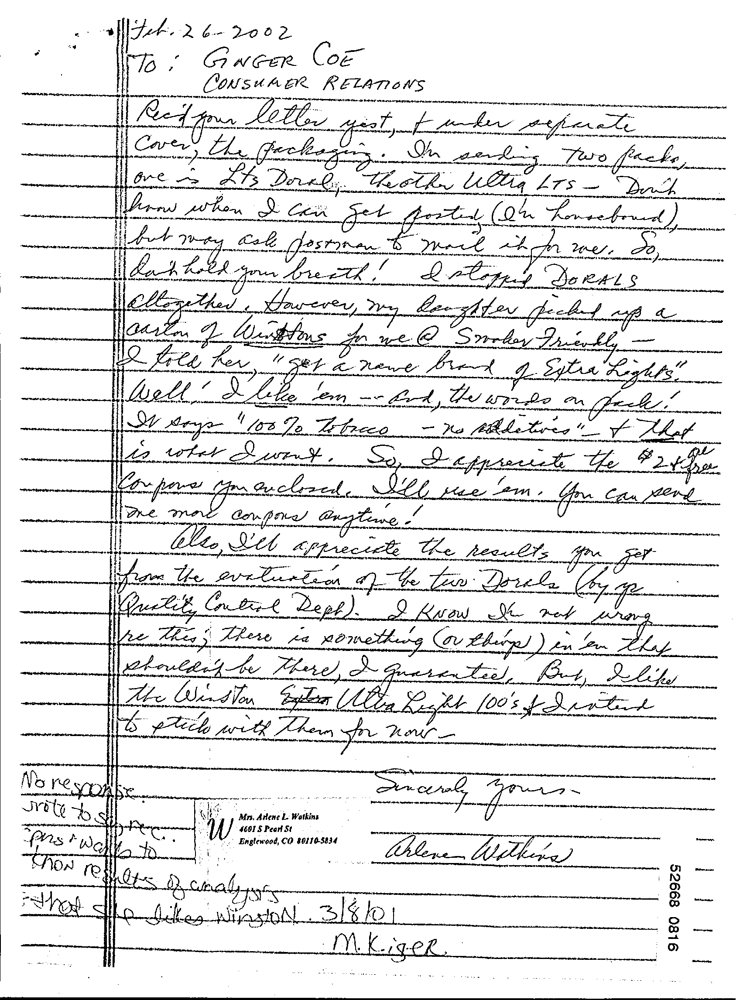 Feb. 26-2002
To: GINGER COE
CONSUMER RELATIONS
Rec'd your letter yest, & under separate
cover, the packaging. I'm sending two packs,
one is Lts Doral, the other Ultra LTS - Don't
know when I can get posted, (I'm housebound),
but may ask postman to mail it for me. So,
don't hold your breath! I stopped DORALS
altogether. However, my daughter picked up a
carton of Winstons for me @ Smoker Friendly -
I told her, "get a new brand of Extra Lights".
Well! I like 'em -- and, the words on pack!
It says "100% tobacco - no additives" - & that
is what I want. So, I appreciate the $2 & free
coupons you enclosed. I'll use 'em. You can send
me more coupons anytime!
Also, I'll appreciate the results you get
from the evaluation of the two Dorals (by
Quality Control Dept). I KNOW I'm not wrong
re this; there is something (or things) in 'em that
shouldn't be there, I guarantee. But, I like
the Winston Extra Ultra Light 100's & I intend
to stick with them for now -
Sincerely yours -
Arlene Watkins
W
Mrs. Arlene L. Watkins
4601 S Pearl St
Englewood, CO 80110-5834
No response.
wrote to say rec.
pns & wants to
know results of analysis
that she likes Winston. 3/8/01
M. Kiger.
52668 0816